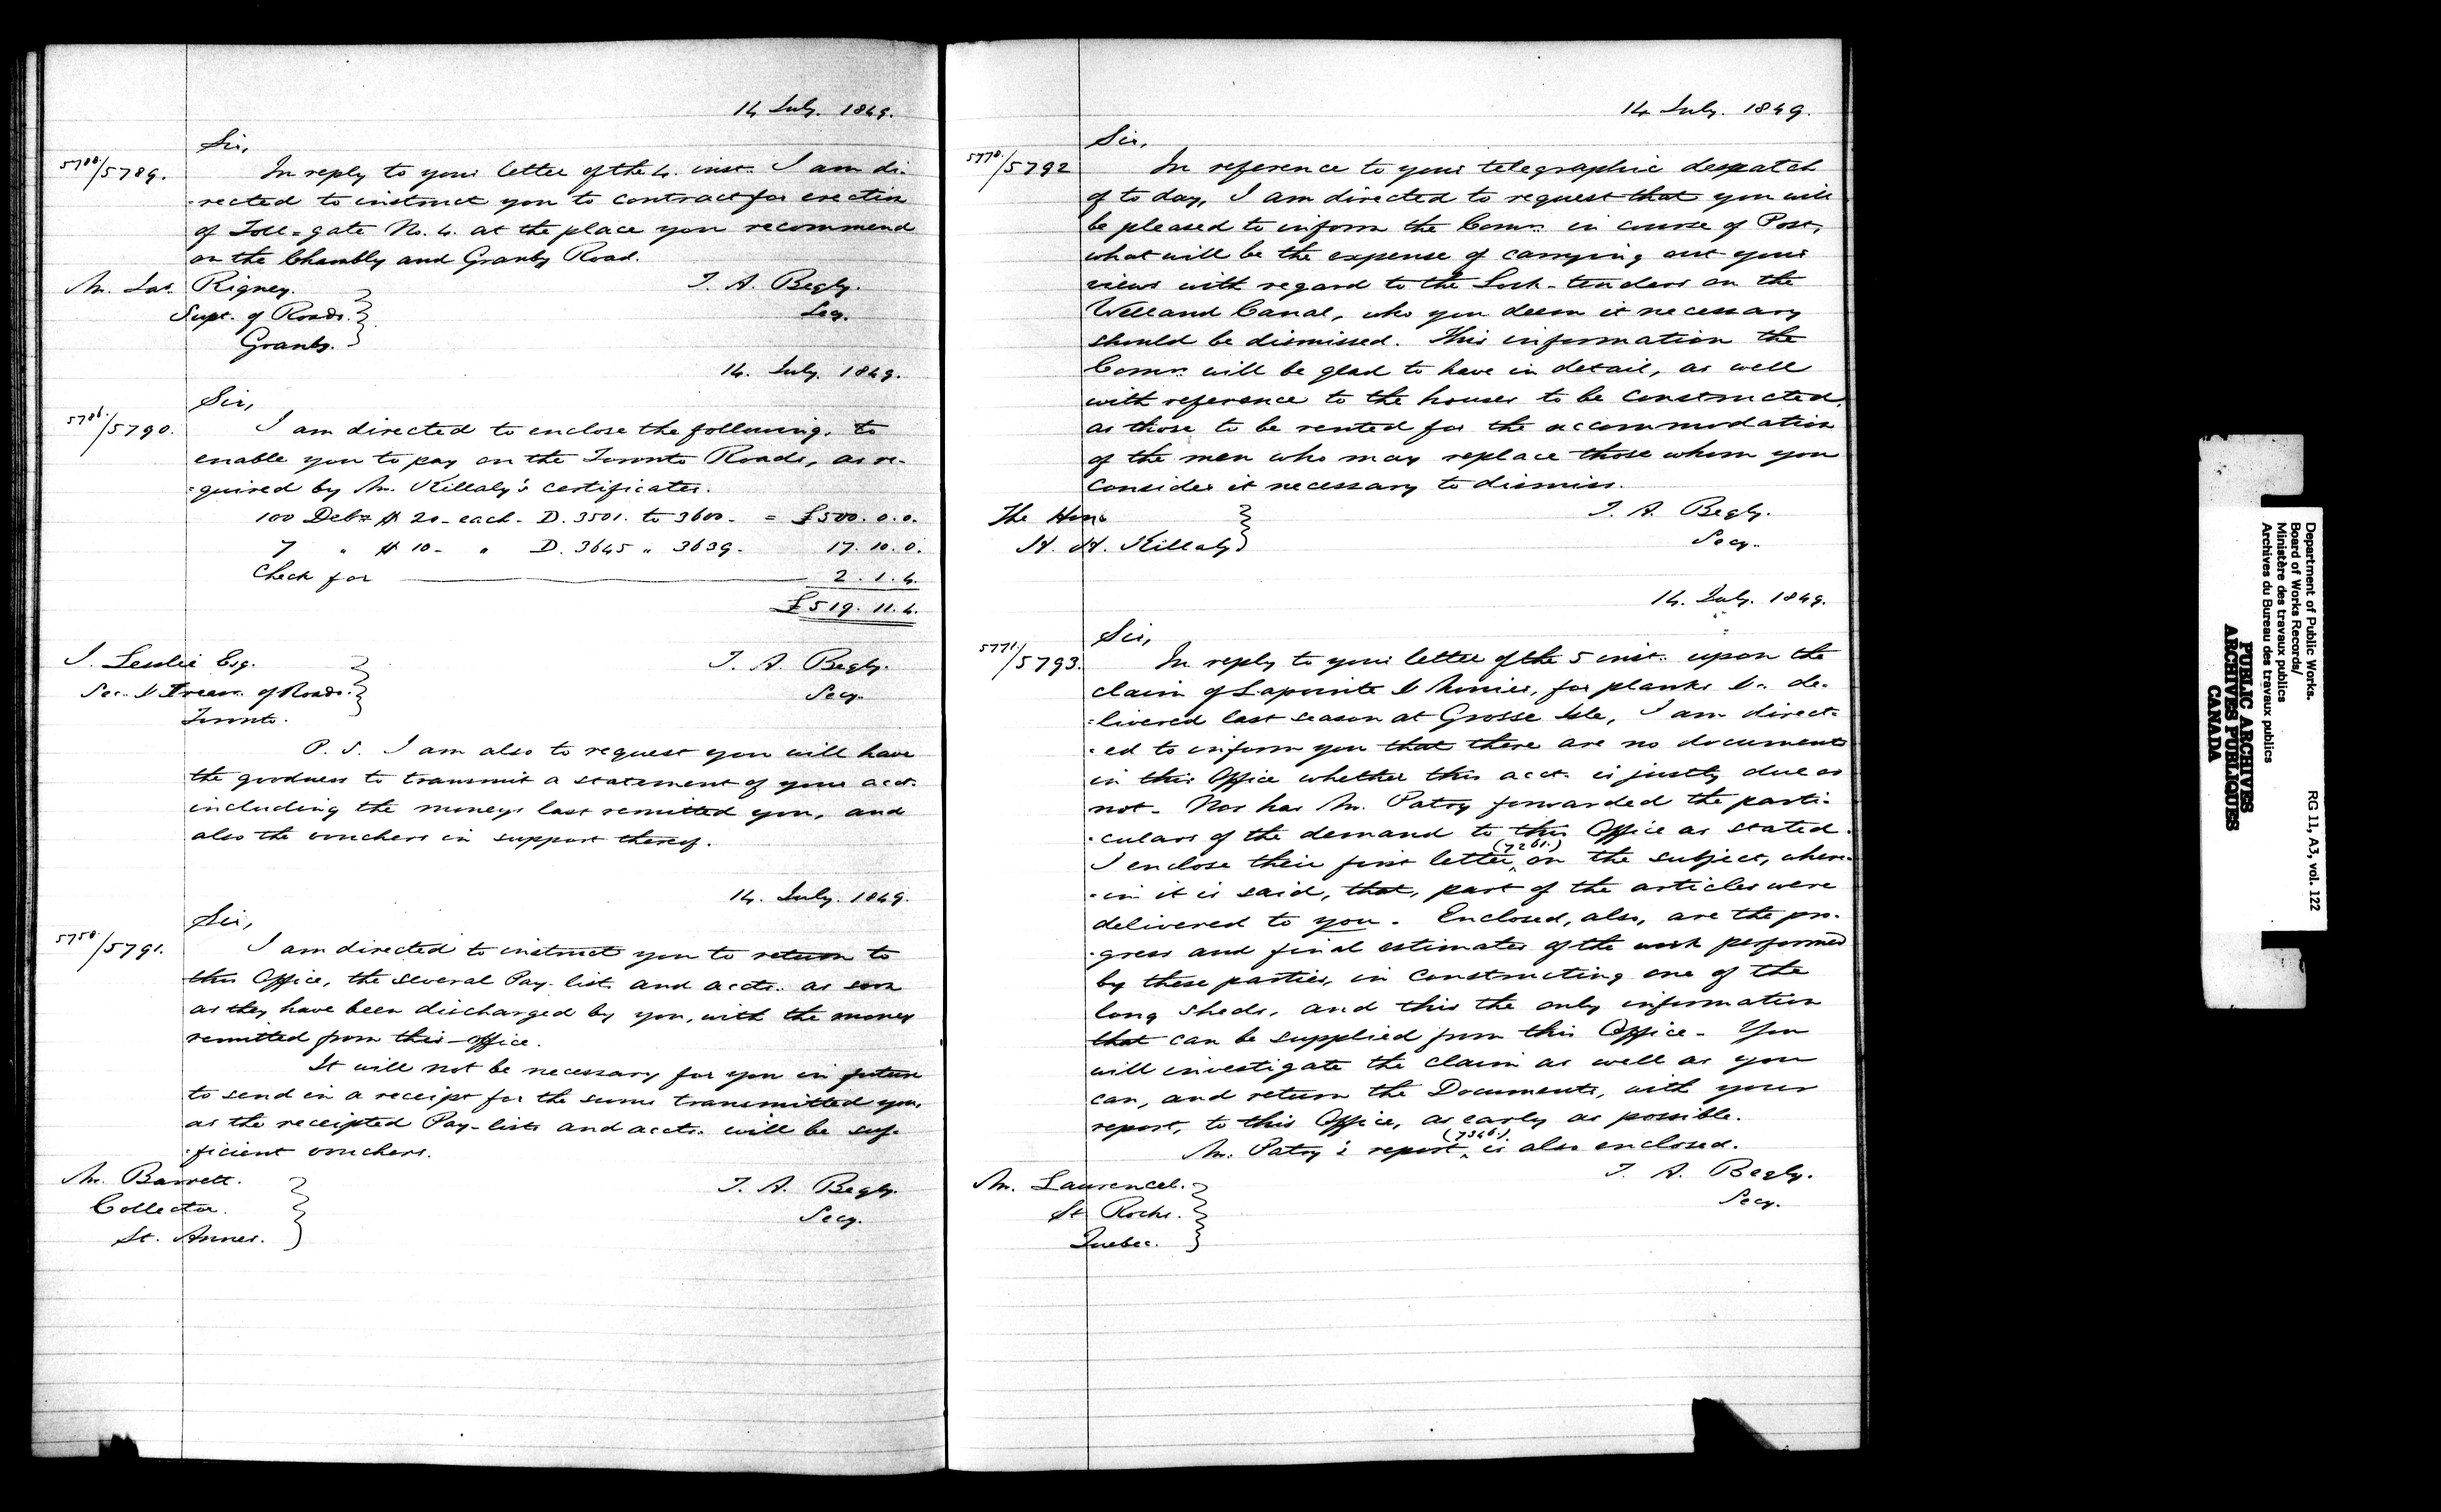 14 July. 1849.
Sir,
5700./5789.
In reply to your letter of the 4. inst. I am di-
-rected to instruct you to contract for erection
of Toll-gate No. 4. at the place you recommend
on the Chambly and Granby Road.
Mr. Jas. Rigney.
T. A. Begly.
Supt. of Roads.
Secy.
Granby.
14. July. 1849.
Sir,
5706./5790.
I am directed to enclose the following, to
enable you to pay on the Toronto Roads, as re-
-quired by Mr. Killaly's certificates.
100 Debs $ 20- each- D. 3501. to 3600- = £500. 0. 0.
7 " $ 10- " D. 3645 " 3639. 17. 10. 0.
Check for 2. 1. 4.
£519. 11. 4.
J. Leslie Esq.
T. A. Begly.
Sec. & Treasr. of Roads.
Secy.
Toronto.
P. S. I am also to request you will have
the goodness to transmit a statement of your acct.
including the moneys last remitted you, and
also the vouchers in support thereof.
14. July. 1849.
Sir,
5750./5791.
I am directed to instruct you to return to
this Office, the several Pay-lists and accts. as soon
as they have been discharged by you, with the money
remitted from this office.
It will not be necessary for you in future
to send in a receipt for the sums transmitted you,
as the receipted Pay-lists and accts. will be suf-
-ficient vouchers.
Mr. Barrett.
T. A. Begly.
Collector.
Secy.
St. Annes.
14 July. 1849.
Sir,
5770./5792
In reference to your telegraphic despatch
of to day, I am directed to request that you will
be pleased to inform the Comrs. in course of Post,
what will be the expense of carrying out your
views with regard to the Lock-tenders on the
Welland Canal, who you deem it necessary
should be dismissed. This information the
Comrs. will be glad to have in detail, as well
with reference to the houses to be constructed,
as those to be rented for the accommodation
of the men who may replace those whom you
consider it necessary to dismiss.
The Hon.
T. A. Begly.
H. H. Killaly
Secy.
14. July. 1849.
Sir,
5771./5793.
In reply to your letter of the 5 inst. upon the
claim of Lapointe & , for planks &c. de-
-livered last season at Grosse Isle, I am direct-
-ed to inform you that there are no documents
in this Office whether this acct. is justly due or
not- Nor has Mr. Patry forwarded the parti-
-culars of the demand to this Office as stated.
(7261.)
I enclose their first letter, on the subject, where-
-in it is said, that, part of the articles were
delivered to you. Enclosed, also, are the pro-
-gress and final estimates of the work performed
by these parties, in constructing one of the
long sheds, and this the only information
that can be supplied from this Office- You
will investigate the claim as well as you
can, and return the Documents, with your
report, to this Office, as early as possible.
(7346.)
Mr. Patry's report, is also enclosed.
T. A. Begly.
Mr. Laurencel.
Secy.
St Rochs.
Quebec.
Department of Public Works.
Board of Works Records/
Ministère des travaux publics
Archives du Bureau des travaux publics
RG 11, A3, vol. 122
PUBLIC ARCHIVES
ARCHIVES PUBLIQUES
CANADA